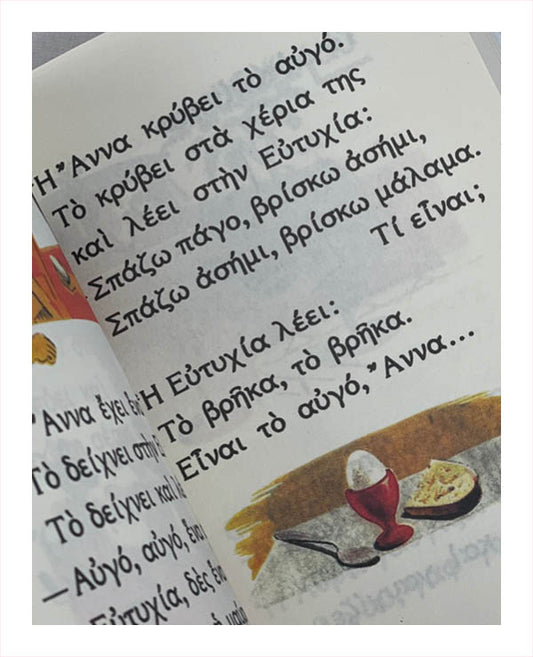 Ἄννα ἔχει ἕν
Τὸ δείχνει στὴν
Τὸ δείχνει καὶ
—Αὐγό, αὐγό, ἕνα
Εὐτυχία, δὲς ἕνα
Ἡ Ἄννα κρύβει τὸ αὐγό.
Τὸ κρύβει στὰ χέρια της
καὶ λέει στὴν Εὐτυχία:
Σπάζω πάγο, βρίσκω ἀσήμι,
Σπάζω ἀσήμι, βρίσκω μάλαμα.
Τί εἶναι;
Ἡ Εὐτυχία λέει:
Τὸ βρῆκα, τὸ βρῆκα.
Εἶναι τὸ αὐγό, Ἄννα...